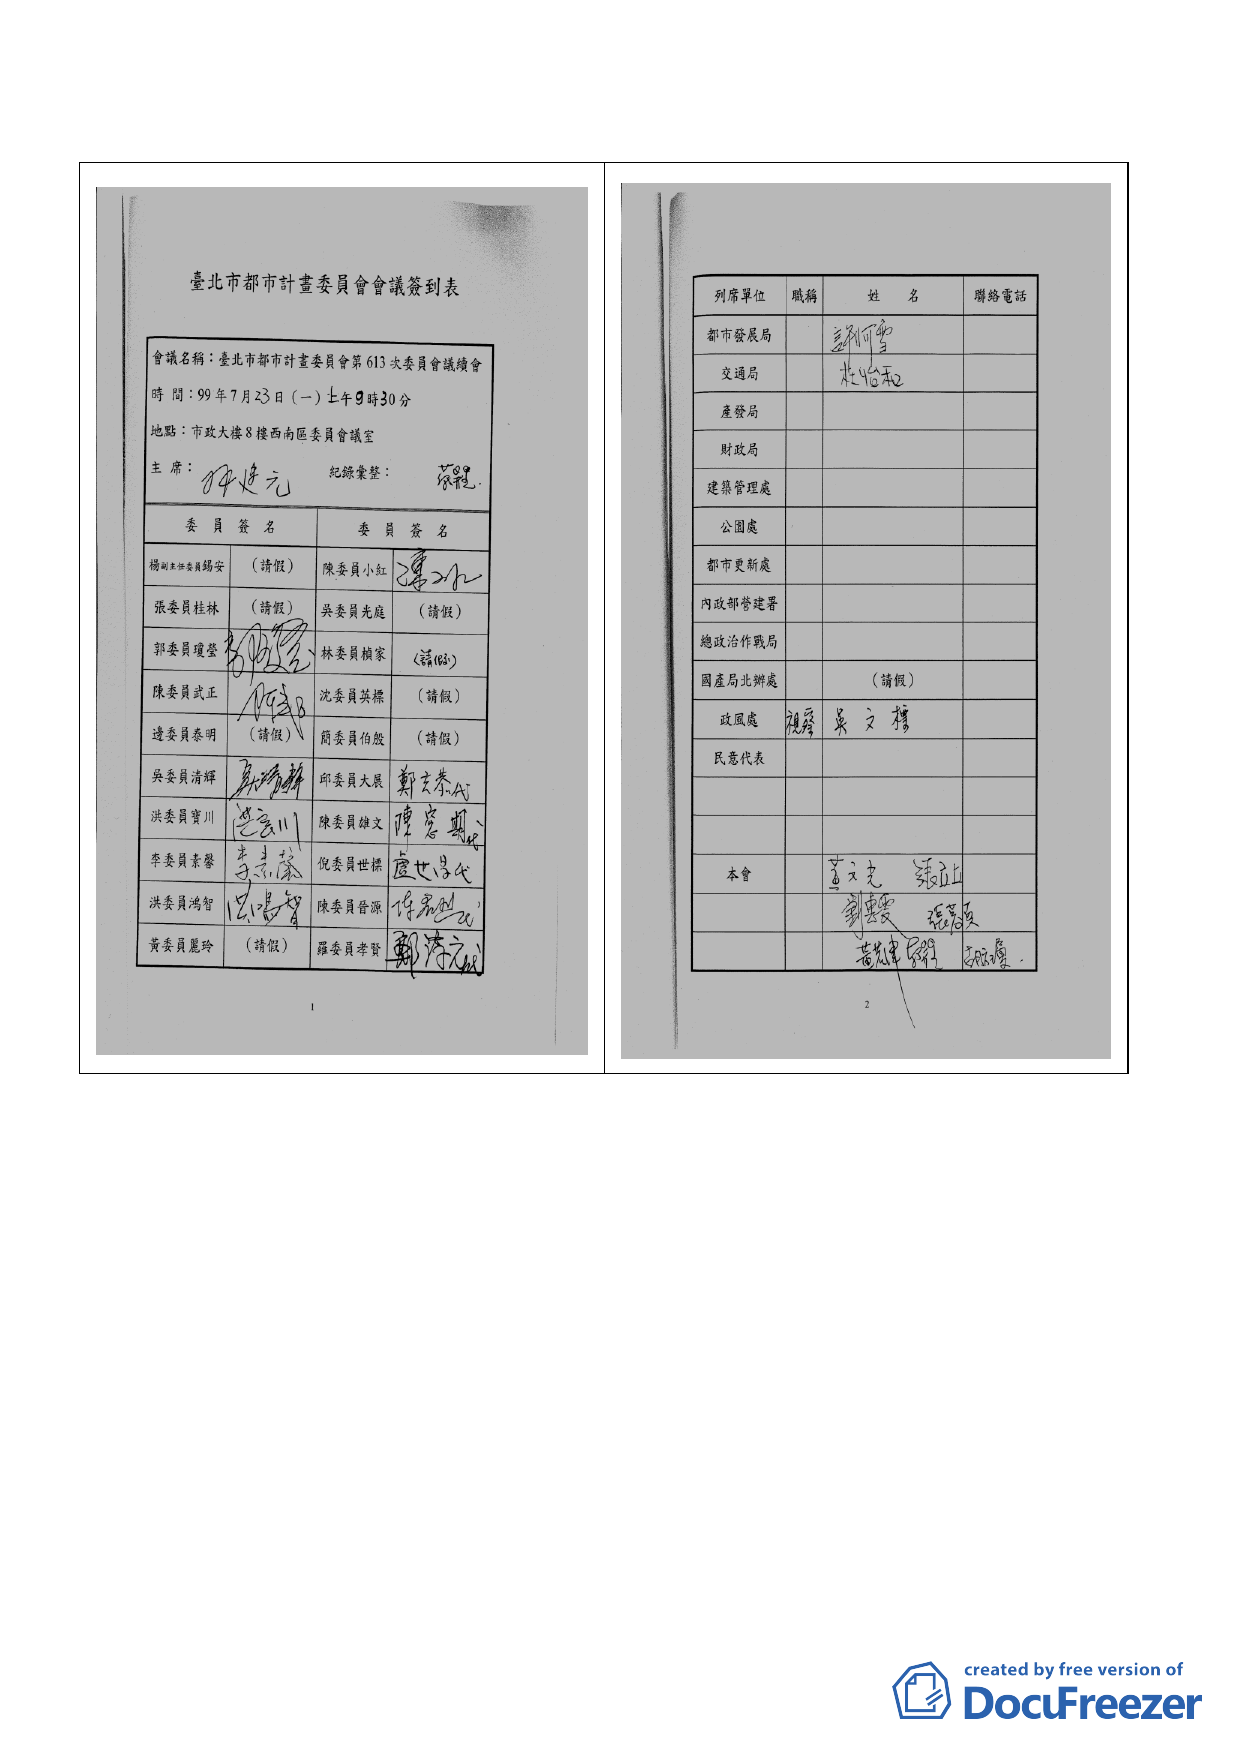 臺北市都市計畫委員會會議簽到表
會議名稱：臺北市都市計畫委員會第 613 次委員會議續會
時 間：99年7月23日（一）上午9時30分
地點：市政大樓8樓西南區委員會議室
主 席： 紀錄彙整：
委 員 簽 名 委 員 簽 名
楊副主任委員錫安 （請假） 陳委員小紅
張委員桂林 （請假） 吳委員光庭 （請假）
郭委員瓊瑩 林委員楨家 （請假）
陳委員武正 沈委員英標 （請假）
邊委員泰明 （請假） 簡委員伯殷 （請假）
吳委員清輝 吳清輝 邱委員大展
洪委員寶川 洪寶川 陳委員雄文
李委員素馨 李素馨 倪委員世標
洪委員鴻智 洪鴻智 陳委員晉源
黃委員麗玲 （請假） 羅委員孝賢
1
列席單位 職稱 姓 名 聯絡電話
都市發展局
交通局
產發局
財政局
建築管理處
公園處
都市更新處
內政部營建署
總政治作戰局
國產局北辦處 （請假）
政風處 視察 吳文標
民意代表
本會 黃文光 張立立
2
created by free version of
DocuFreezer